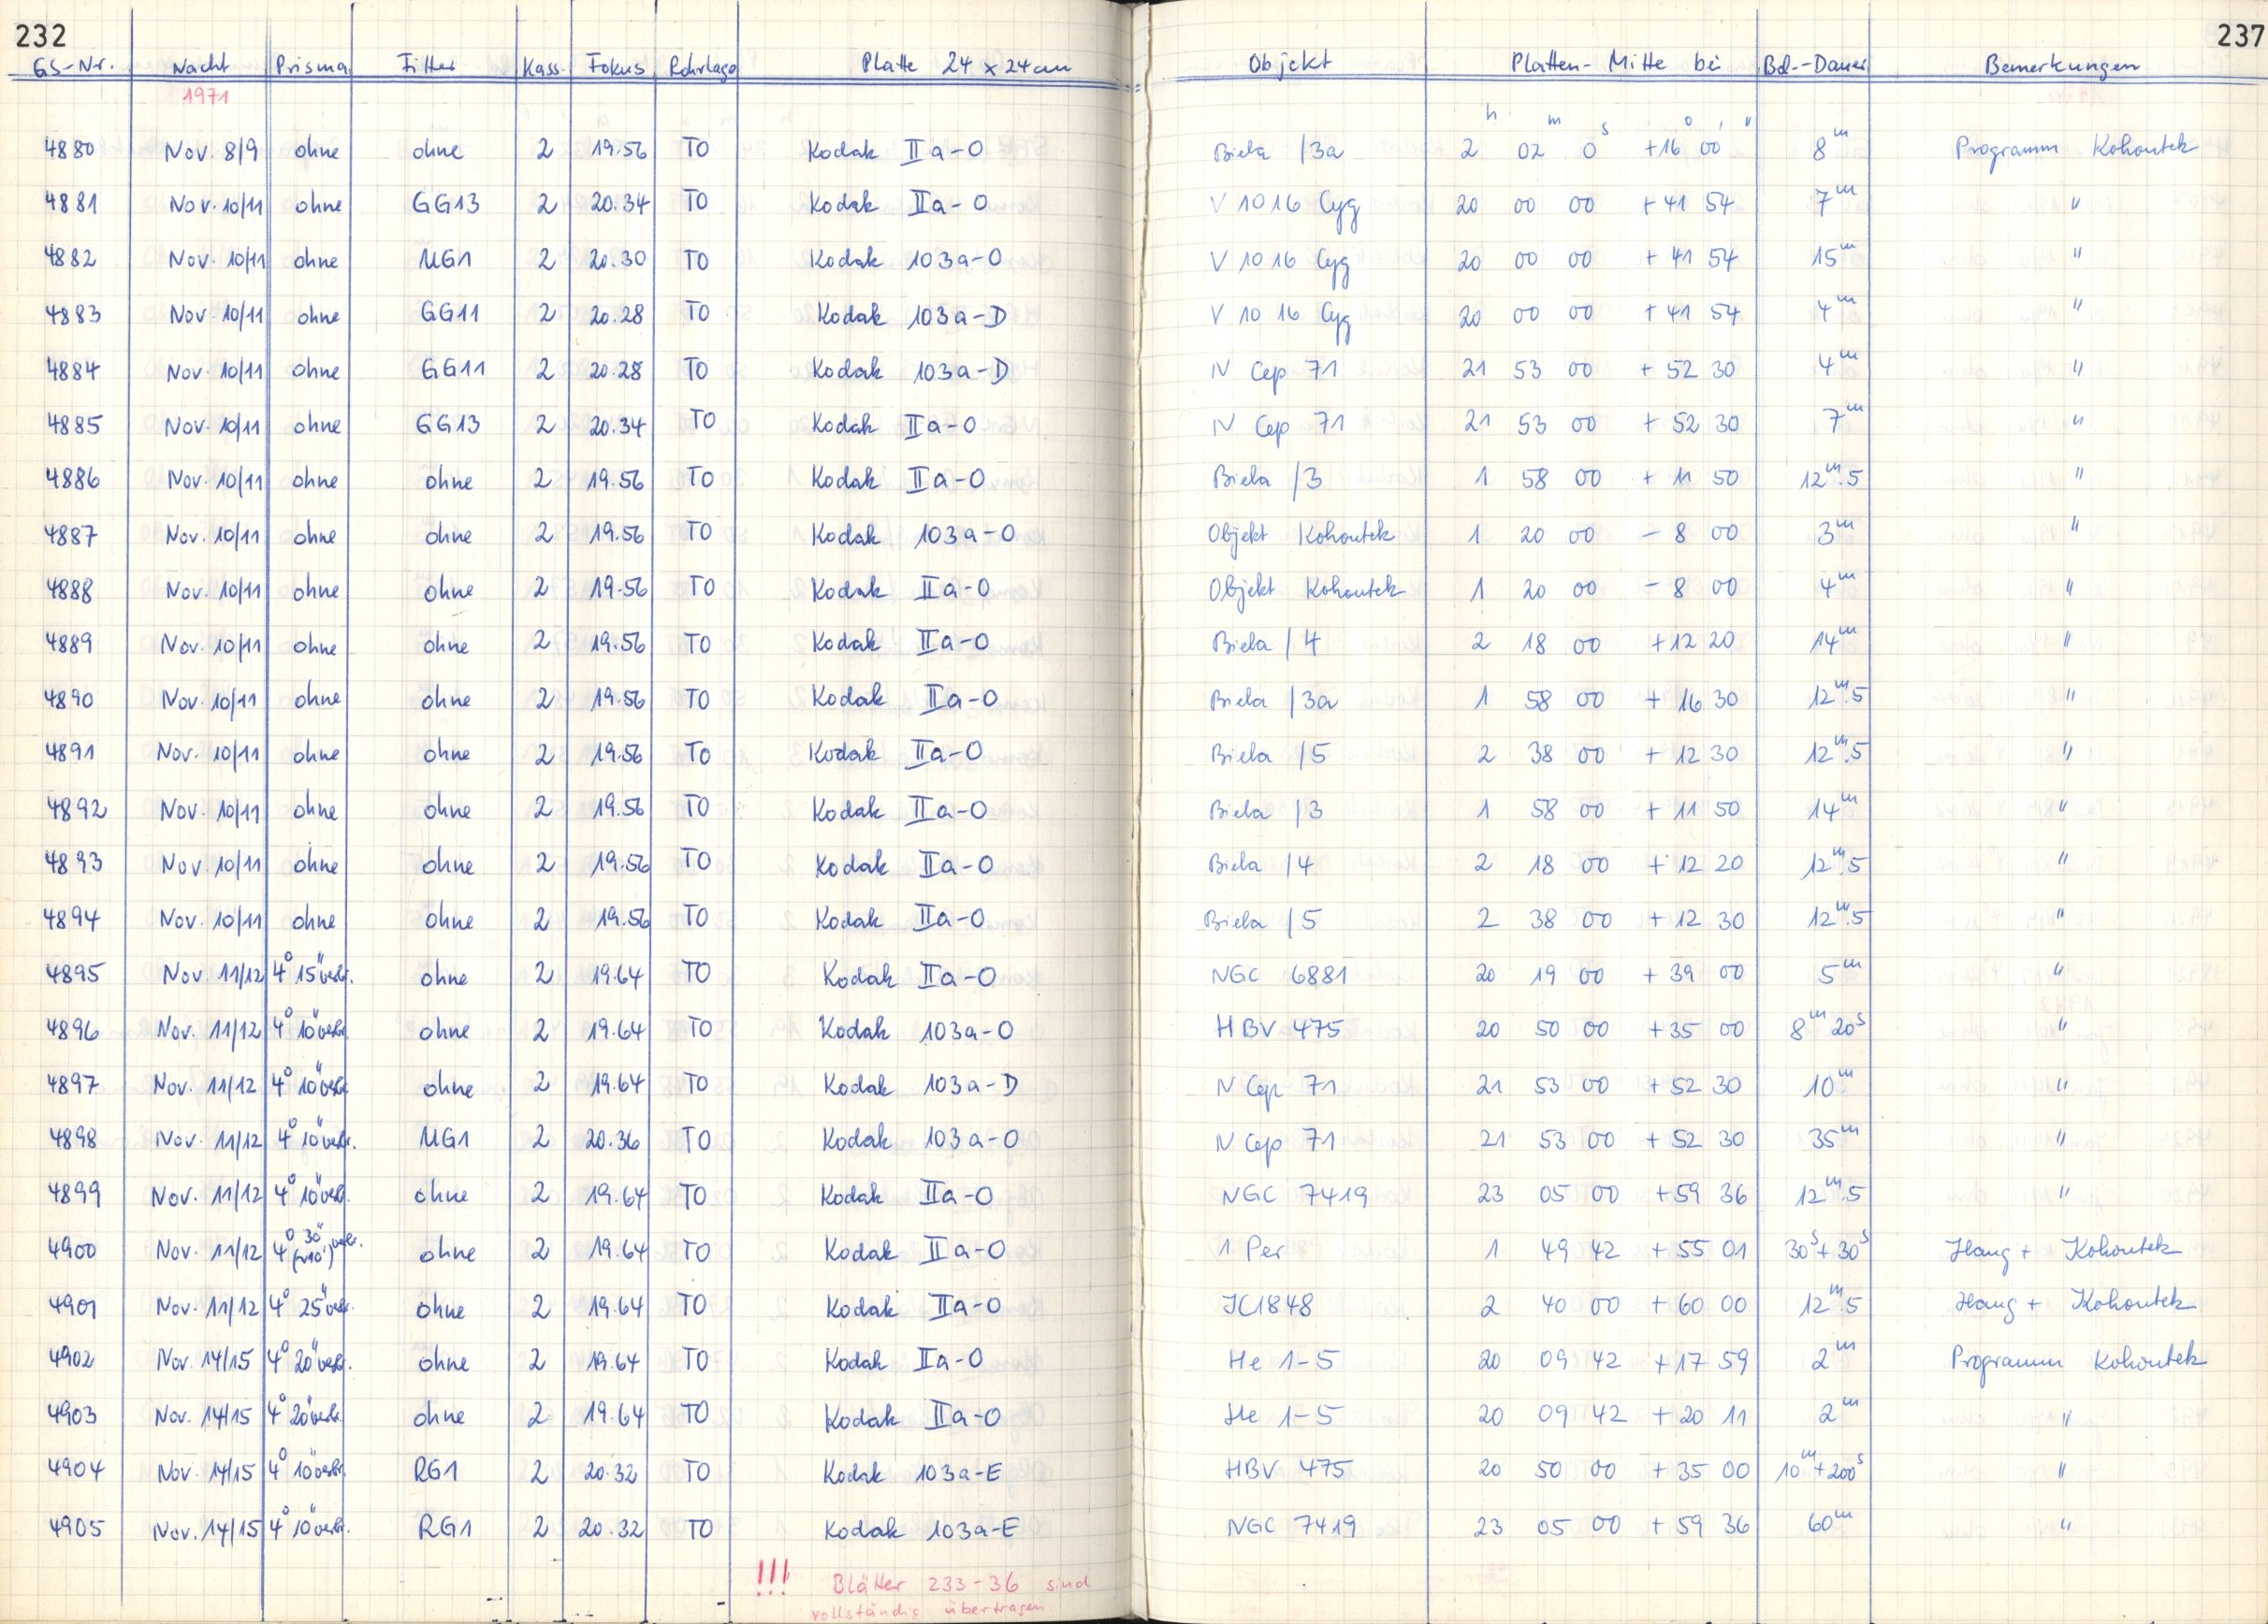 232 237
GS-Nr. Nacht Prisma Filter Kass. Fokus Rohrlage Platte 24 x 24 cm Objekt Platten-Mitte bei Bel.-Dauer Bemerkungen
1971
h m s o ' "
4880 Nov. 8/9 ohne ohne 2 19.56 TO Kodak IIa-O Biela /3a 2 02 0 +16 00 8m Programm Kohoutek
4881 Nov. 10/11 ohne GG13 2 20.34 TO Kodak IIa-O V 1016 Cyg 20 00 00 +41 54 7m "
4882 Nov. 10/11 ohne UG1 2 20.30 TO Kodak 103a-O V 1016 Cyg 20 00 00 +41 54 15m "
4883 Nov. 10/11 ohne GG11 2 20.28 TO Kodak 103a-D V 1016 Cyg 20 00 00 +41 54 4m "
4884 Nov. 10/11 ohne GG11 2 20.28 TO Kodak 103a-D N Cep 71 21 53 00 +52 30 4m "
4885 Nov. 10/11 ohne GG13 2 20.34 TO Kodak IIa-O N Cep 71 21 53 00 +52 30 7m "
4886 Nov. 10/11 ohne ohne 2 19.56 TO Kodak IIa-O Biela /3 1 58 00 +11 50 12m.5 "
4887 Nov. 10/11 ohne ohne 2 19.56 TO Kodak 103a-O Objekt Kohoutek 1 20 00 -8 00 3m "
4888 Nov. 10/11 ohne ohne 2 19.56 TO Kodak IIa-O Objekt Kohoutek 1 20 00 -8 00 4m "
4889 Nov. 10/11 ohne ohne 2 19.56 TO Kodak IIa-O Biela /4 2 18 00 +12 20 14m "
4890 Nov. 10/11 ohne ohne 2 19.56 TO Kodak IIa-O Biela /3a 1 58 00 +16 30 12m.5 "
4891 Nov. 10/11 ohne ohne 2 19.56 TO Kodak IIa-O Biela /5 2 38 00 +12 30 12m.5 "
4892 Nov. 10/11 ohne ohne 2 19.56 TO Kodak IIa-O Biela /3 1 58 00 +11 50 14m "
4893 Nov. 10/11 ohne ohne 2 19.56 TO Kodak IIa-O Biela /4 2 18 00 +12 20 12m.5 "
4894 Nov. 10/11 ohne ohne 2 19.56 TO Kodak IIa-O Biela /5 2 38 00 +12 30 12m.5 "
4895 Nov. 11/12 4° 15" verbr. ohne 2 19.64 TO Kodak IIa-O NGC 6881 20 19 00 +39 00 5m "
4896 Nov. 11/12 4° 10" verbr. ohne 2 19.64 TO Kodak 103a-O HBV 475 20 50 00 +35 00 8m 20s "
4897 Nov. 11/12 4° 10" verbr. ohne 2 19.64 TO Kodak 103a-D N Cep 71 21 53 00 +52 30 10m "
4898 Nov. 11/12 4° 10" verbr. UG1 2 20.36 TO Kodak 103a-O N Cep 71 21 53 00 +52 30 35m "
4899 Nov. 11/12 4° 10" verbr. ohne 2 19.64 TO Kodak IIa-O NGC 7419 23 05 00 +59 36 12m.5 "
4900 Nov. 11/12 4° 30" verbr. ohne 2 19.64 TO Kodak IIa-O 1 Per 1 49 42 +55 01 30s+30s Haug + Kohoutek
4901 Nov. 11/12 4° 25" verbr. ohne 2 19.64 TO Kodak IIa-O IC1848 2 40 00 +60 00 12m.5 Haug + Kohoutek
4902 Nov. 14/15 4° 20" verbr. ohne 2 19.64 TO Kodak IIa-O He 1-5 20 09 42 +17 59 2m Programm Kohoutek
4903 Nov. 14/15 4° 20" verbr. ohne 2 19.64 TO Kodak IIa-O He 1-5 20 09 42 +20 11 2m "
4904 Nov. 14/15 4° 10" verbr. RG1 2 20.32 TO Kodak 103a-E HBV 475 20 50 00 +35 00 10m+200s "
4905 Nov. 14/15 4° 10" verbr. RG1 2 20.32 TO Kodak 103a-E NGC 7419 23 05 00 +59 36 60m "
!!! Blätter 233-36 sind
vollständig übertragen